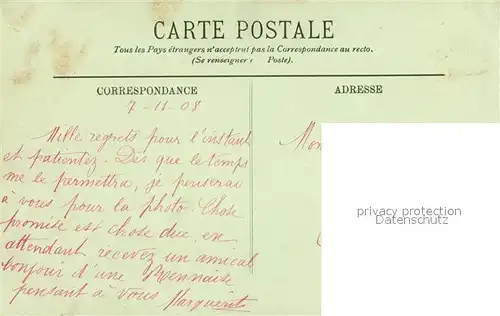 CARTE POSTALE
Tous les Pays étrangers n'acceptent pas la Correspondance au recto.
(Se renseigner Poste).
CORRESPONDANCE
7-11-08
Mille regrets pour l'instant
et patientez. Dès que le temps
me le permettra, je penserai
à vous pour la photo. Chose
promise est chose due, en
attendant recevez un amical
bonjour d'une Rennaise
pensant à vous Marguerite
ADRESSE
Mon
privacy protection
Datenschutz